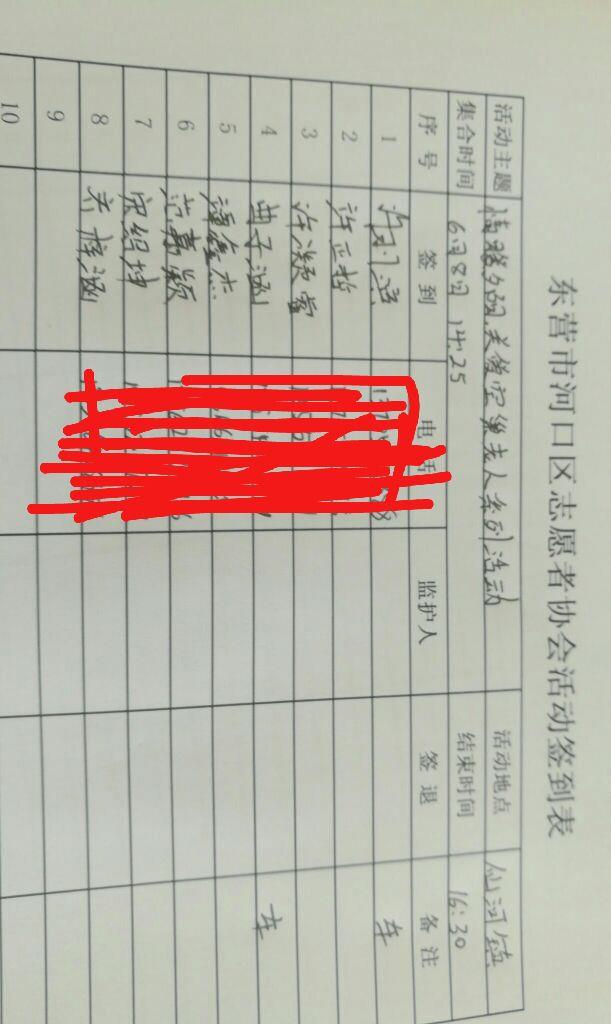 东营市河口区志愿者协会活动签到表
活动主题 情暖夕阳.关爱空巢老人系列活动 活动地点 仙河镇
集合时间 6月8日 14:25 结束时间 16:30
序号 签到 电话 监护人 签退 备注
1 车
2 许正哲
3 许凝雪
4 曲子涵 车
5
6 范嘉颖
7 宋绍坤
8 齐梓涵
9
10